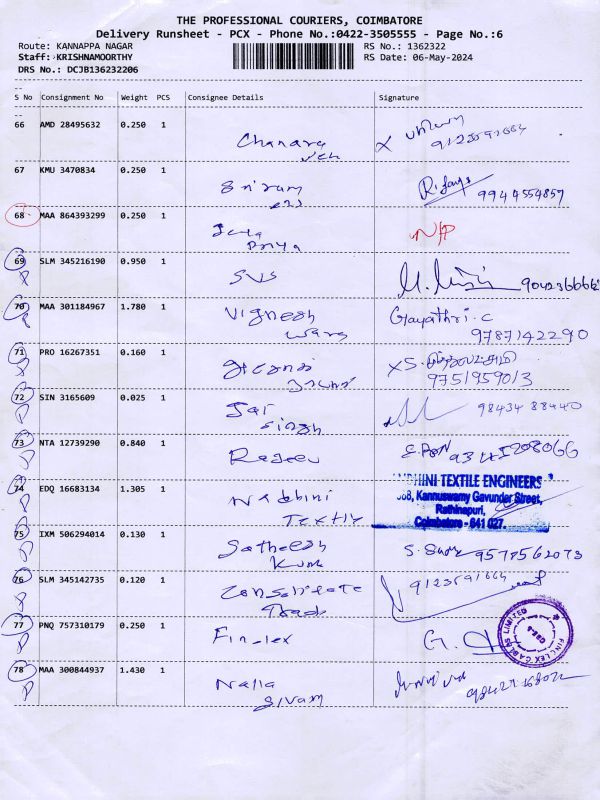 THE PROFESSIONAL COURIERS, COIMBATORE
Delivery Runsheet - PCX - Phone No.:0422-3505555 - Page No.:6
Route: KANNAPPA NAGAR RS No.: 1362322
Staff: KRISHNAMOORTHY RS Date: 06-May-2024
DRS No.: DCJB136232206
S No Consignment No Weight PCS Consignee Details Signature
66 AMD 28495632 0.250 1
67 KMU 3470834 0.250 1 Sriram 9944554857
68 MAA 864393299 0.250 1 Priya N/P
69 SLM 345216190 0.950 1 SVS
70 MAA 301184967 1.780 1 Vignesh Gayathri.C
9787142290
71 PRO 16267351 0.160 1
9751959013
72 SIN 3165609 0.025 1 Jai 98434 88440
Singh
73 NTA 12739290 0.840 1 Rajeev
74 EDQ 16683134 1.305 1 Nandhini
HINI TEXTILE ENGINEERS
Kannuswamy Gavunder Street,
Rathinapuri,
Coimbatore - 641 027.
75 IXM 506294014 0.130 1 Satheesh 9578562073
76 SLM 345142735 0.120 1 Consolidate
77 PNQ 757310179 0.250 1 Finolex G.
FINOLEX CABLES LIMITED
78 MAA 300844937 1.430 1 Nalla
Sivam